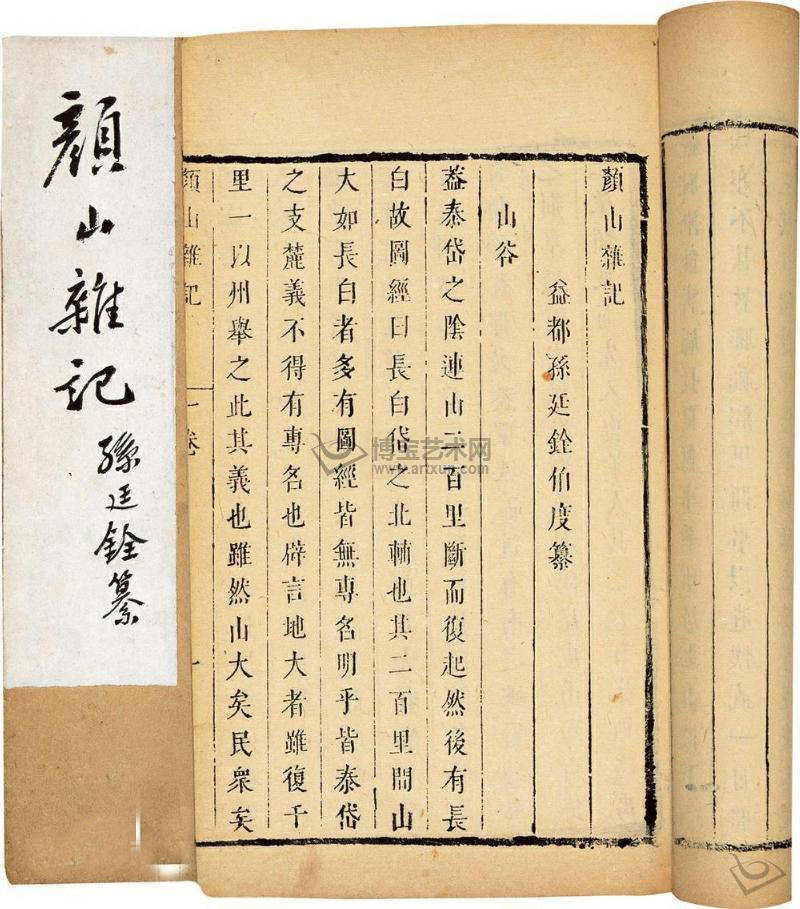 顏山雜記
孫廷銓纂
顏山雜記
益都孫廷銓伯度纂
山谷
葢泰岱之陰連山二百里斷而復起然後有長
白故圖經曰長白岱之北輔也其二百里間山
大如長白者多有圖經皆無專名明乎皆泰岱
之支麓義不得有專名也辟言地大者雖復千
里一以州舉之此其義也雖然山大矣民衆矣
顏山雜記 一卷 一
博宝艺术网
www.artxun.com